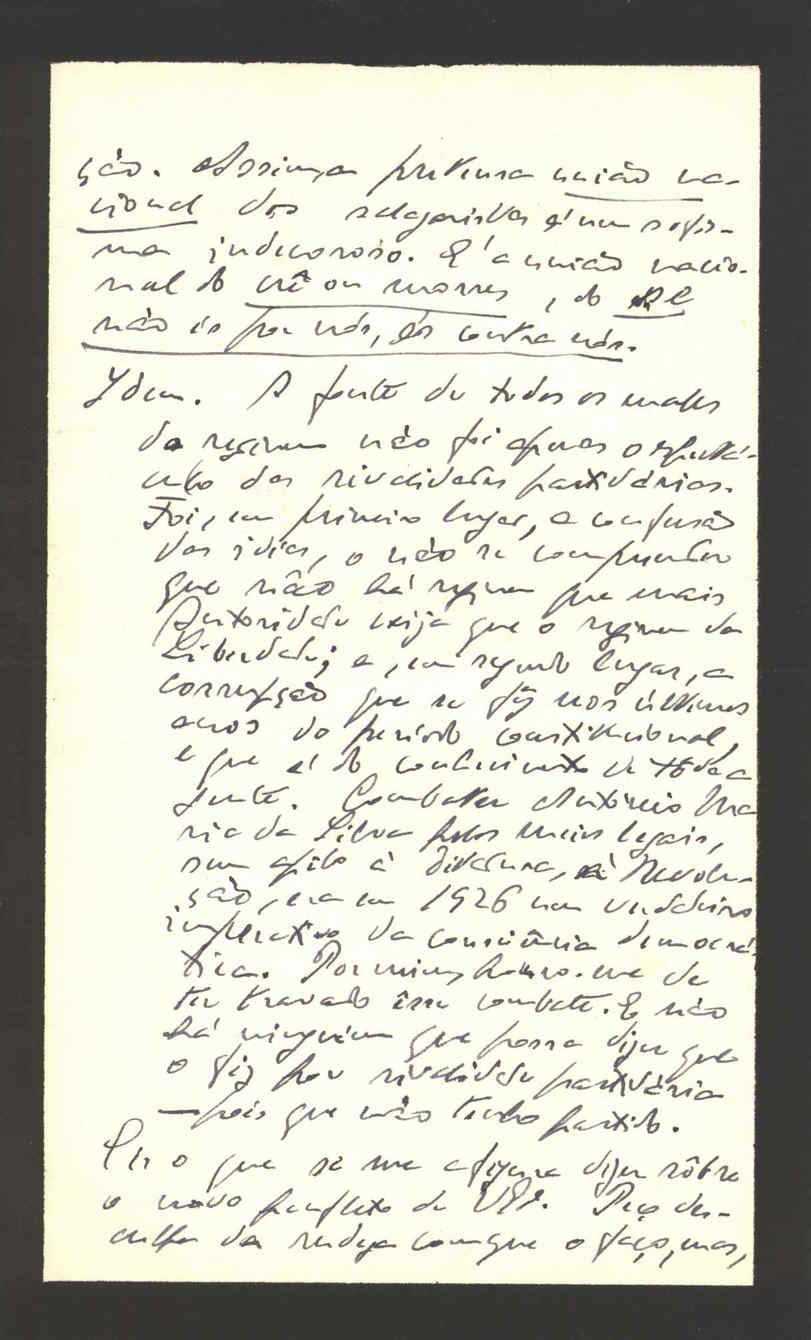 ção. Assim, a pretensa união na-
cional dos salazaristas é um sofis-
ma indecoroso. É a união nacio-
nal do crê ou morres, do se
não és por nós, és contra nós.
Idem. A fonte de todos os males
do regimen não foi apenas o espectá-
culo das rivalidades partidárias.
Foi, em primeiro lugar, a confusão
das ideias, o não se compreender
que não há regimen que mais
Autoridade exija que o regimen da
Liberdade; e, em segundo lugar, a
corrupção que se fez nos últimos
anos do período constitucional,
e que é do conhecimento de tôda a
gente. Combater António Ma
ria da Silva pelos meios legais,
sem apêlo à Ditadura, à Revolu-
ção, era em 1926 um verdadeiro
imperativo da consciência democrá-
tica. Por mim, honro-me de
ter travado êsse combate. E não
há ninguém que possa dizer que
o fiz por rivalidade partidária
— pois que não tenho partido.
Eis o que se me afigura dizer sôbre
o novo panfleto de
Peço des-
culpa da rudeza com que o faço, mas,